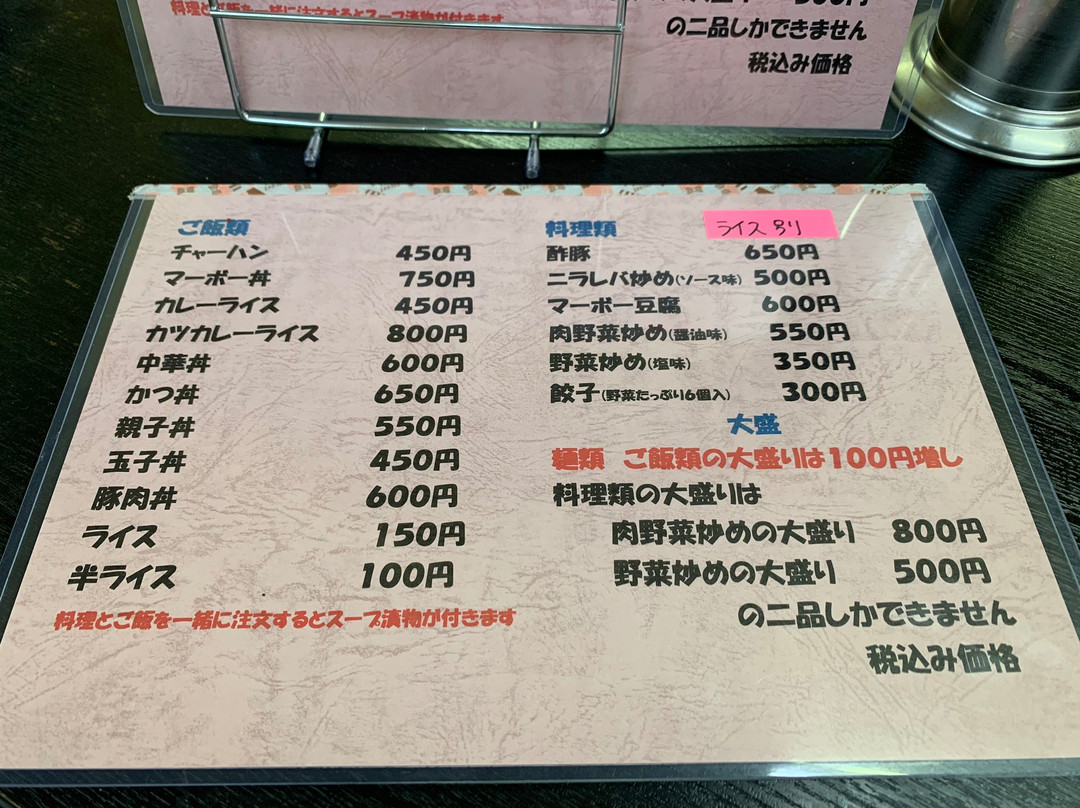 料理とご飯を一緒に注文するとスープ漬物が付きます
の二品しかできません
税込み価格
ご飯類
チャーハン 450円
マーボー丼 750円
カレーライス 450円
カツカレーライス 800円
中華丼 600円
かつ丼 650円
親子丼 550円
玉子丼 450円
豚肉丼 600円
ライス 150円
半ライス 100円
料理とご飯を一緒に注文するとスープ漬物が付きます
料理類
ライス別り
酢豚 650円
ニラレバ炒め(ソース味) 500円
マーボー豆腐 600円
肉野菜炒め(醤油味) 550円
野菜炒め(塩味) 350円
餃子(野菜たっぷり6個入) 300円
大盛
麺類 ご飯類の大盛りは100円増し
料理類の大盛りは
肉野菜炒めの大盛り 800円
野菜炒めの大盛り 500円
の二品しかできません
税込み価格